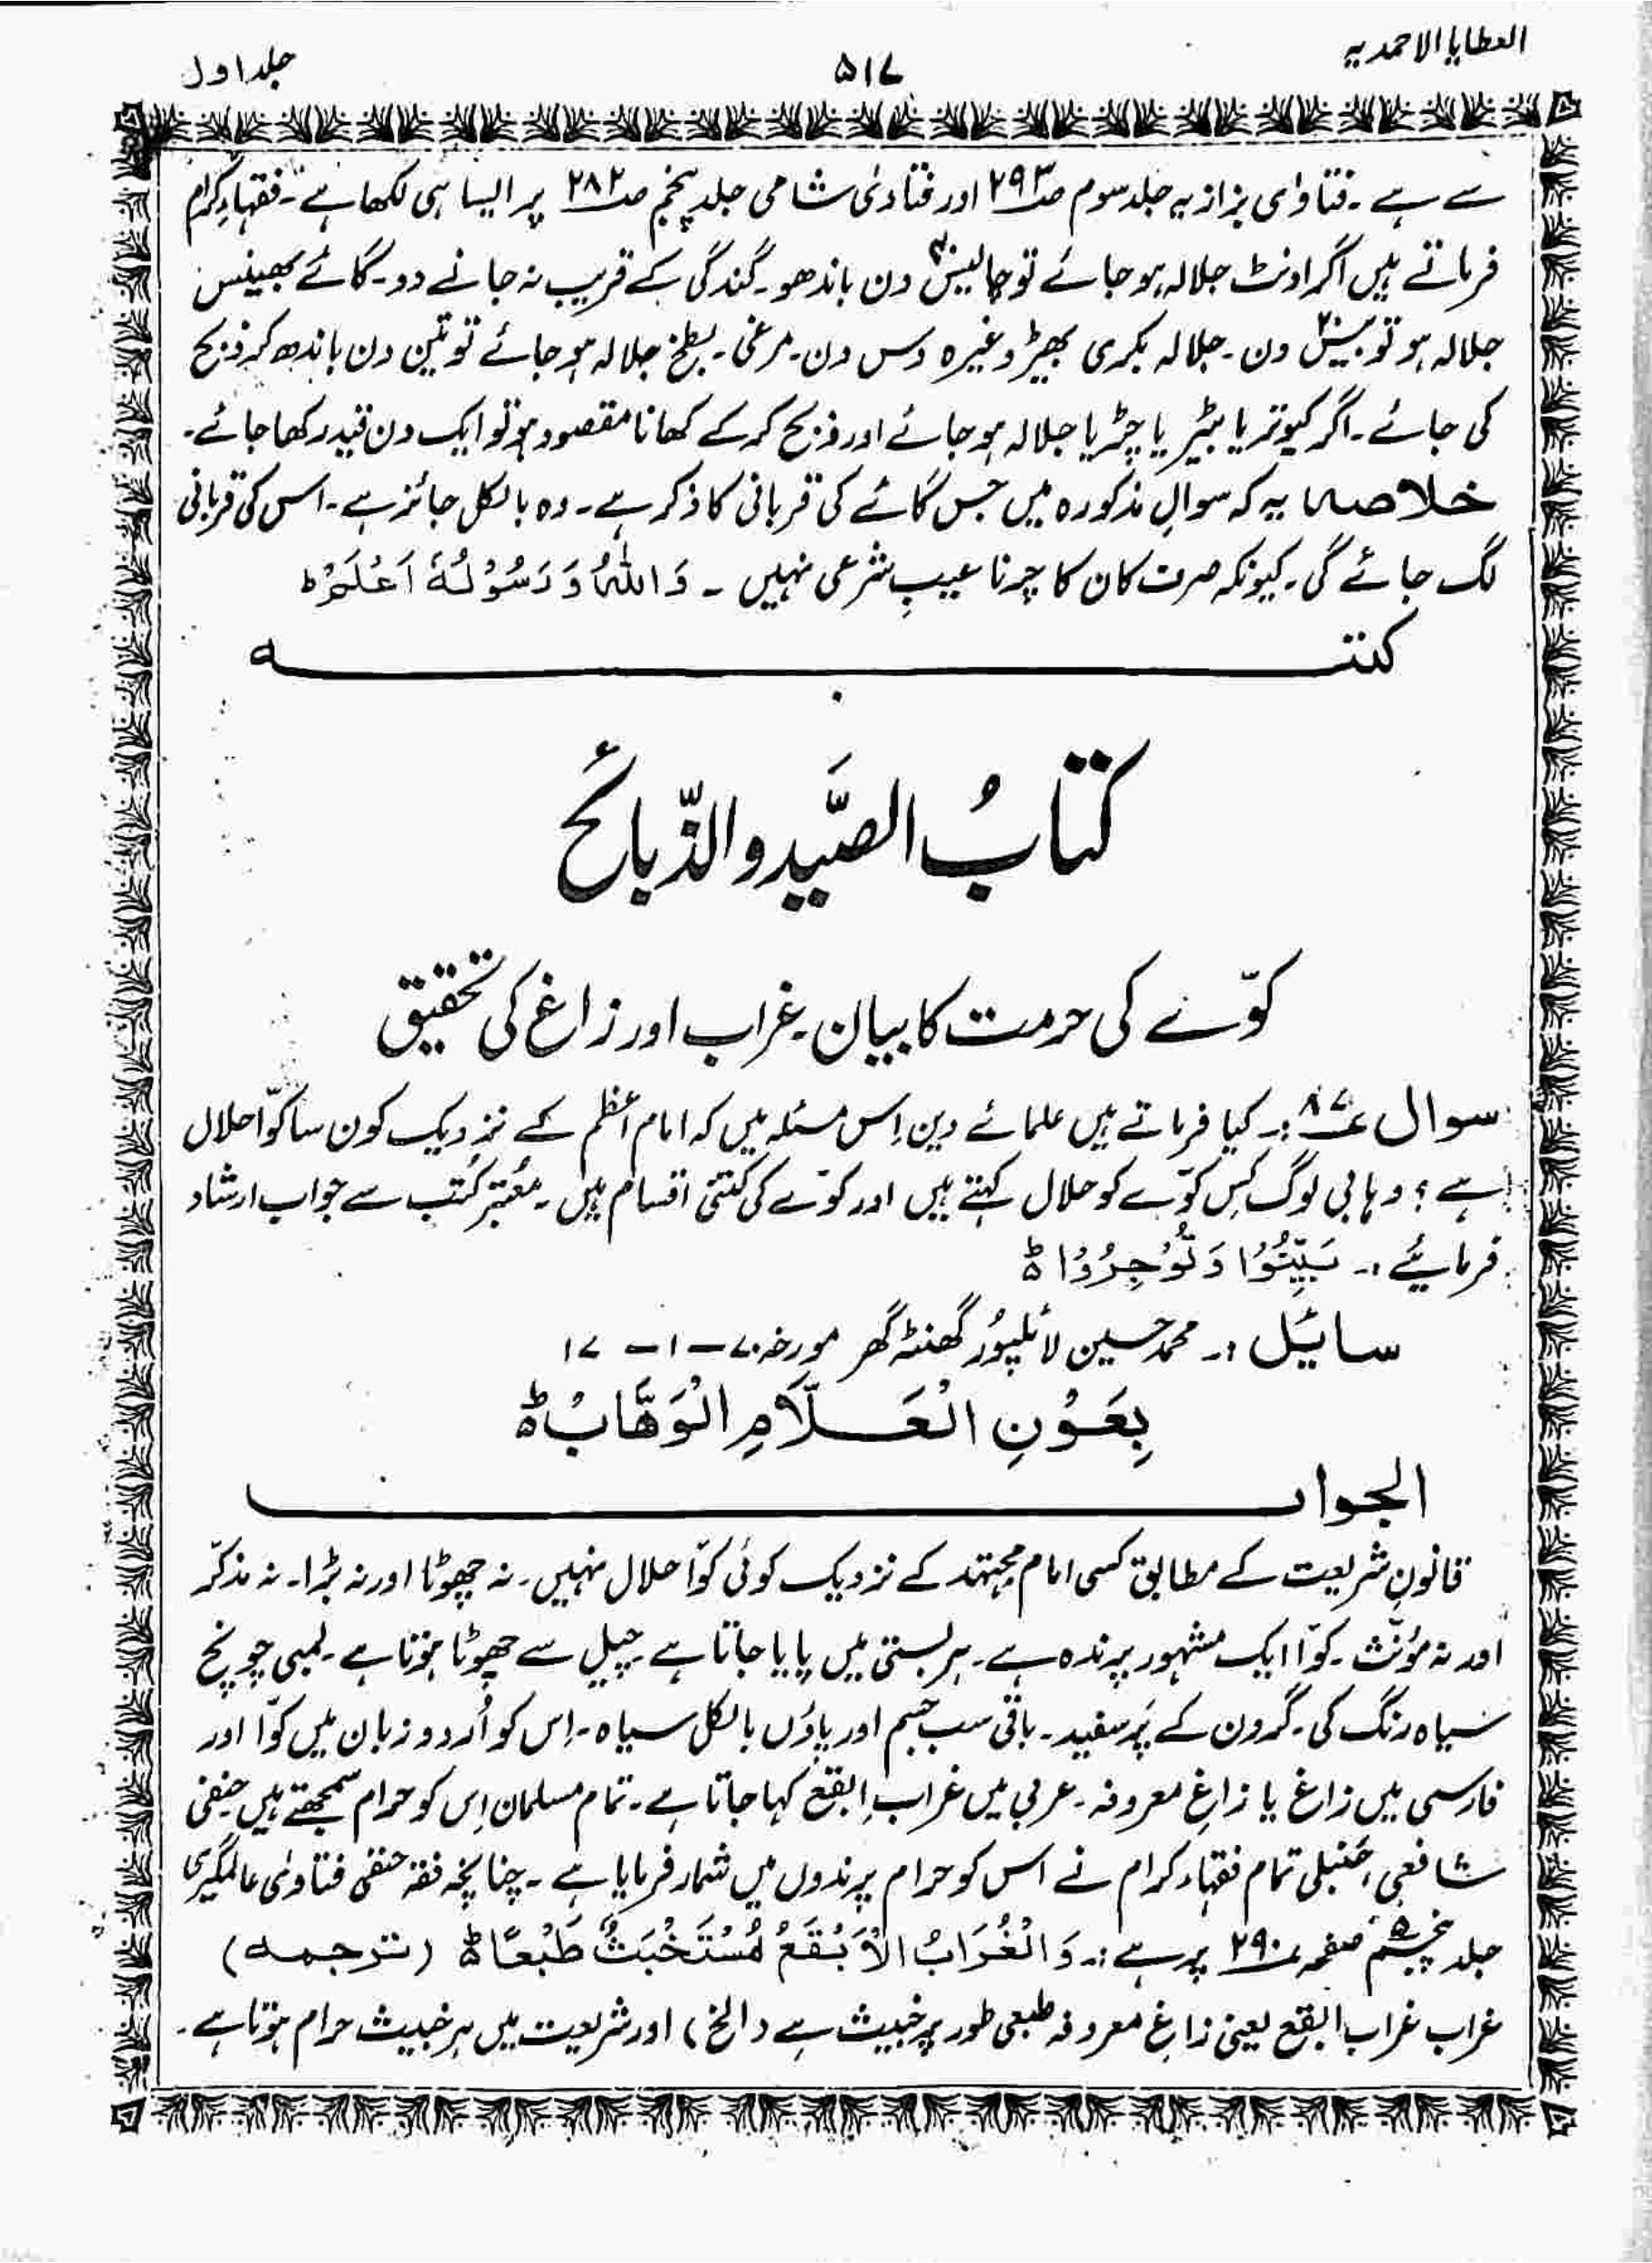 العطایا الاحمدیہ
۵۱۷
جلد اول
سے ہے ۔ فتاوٰی بزازیہ جلد سوم صـ۲۹۳ اور فتادیٰ شامی جلد پنجم صـ۲۸۲ پر ایسا ہی لکھا ہے ۔ فقہاءِ کرام
فرماتے ہیں اگر اونٹ جلالہ ہو جائے تو چالیس۴۰ دن باندھو ۔ گندگی کے قریب نہ جانے دو ۔ گائے بھینس
جلالہ ہو تو بیس۲۰ دن ۔ جلالہ بکری بھیڑ وغیرہ دس دن ۔ مرغی ۔ بطخ جلالہ ہو جائے تو تین دن باندھ کر ذبح
کی جائے ۔ اگر کبوتر یا بٹیر یا چڑیا جلالہ ہو جائے اور ذبح کر کے کھانا مقصود ہو تو ایک دن قید رکھا جائے ۔
خلاصہ یہ کہ سوالِ مذکورہ میں جس گائے کی قربانی کا ذکر ہے ۔ وہ بالکل جائز ہے ۔ اس کی قربانی
لگ جائے گی ۔ کیونکہ صرف کان کا چرنا عیبِ شرعی نہیں ۔ وَاللّٰہُ وَ رَسُوْلُہٗ اَعْلَمُ ط
کتبـــــہ
کتابُ الصَّید والذّبائح
کوّے کی حرمت کا بیان ۔ غراب اور زاغ کی تحقیق
سوال ۸۷؎ :۔ کیا فرماتے ہیں علمائے دین اِس مسئلہ میں کہ امام اعظم کے نزدیک کون سا کوّا حلال
ہے ؟ وہابی لوگ کِس کوّے کو حلال کہتے ہیں اور کوّے کی کتنی اقسام ہیں ۔ معُتبر کتب سے جواب ارشاد
فرمائیے :۔ بَیِّنُوْا وَ تُوْجِرُوْا ط
سائیل :۔ محمد حسین لائلپور گھنٹہ گھر مورخہ ۷۰ – ۱ – ۱۷
بِعَوْنِ الْعَلَّامِ الْوَھَّابُ ط
الجواب
قانونِ شریعت کے مطابق کسی امام مجتہد کے نزدیک کوئی کوّا حلال نہیں ۔ نہ چھوٹا اور نہ بڑا ۔ نہ مذکّر
اور نہ مؤنّث ۔ کوّا ایک مشہور پرندہ ہے ۔ ہر بستی میں پایا جاتا ہے ۔ چیل سے چھوٹا ہوتا ہے ۔ لمبی چونچ
سیاہ رنگ کی ۔ گردن کے پَر سفید ۔ باقی سب جسم اور پاؤں بالکل سیاہ ۔ اِس کو اُردو زبان میں کوّا اور
فارسی میں زاغ یا زاغِ معروفہ ۔ عربی میں غراب اِبقع کہا جاتا ہے ۔ تمام مسلمان اِس کو حرام سمجھتے ہیں حنفی
شافعی ، حَنبلی تمام فقہاء کرام نے اس کو حرام پرندوں میں شمار فرمایا ہے ۔ چنانچہ فقہ حنفی فتاوٰی عالمگیری
جلد پنجم۵ صفحہ ۲۹۰؎ پر ہے :۔ وَالْغُرَابُ الْاَبْقَعُ مُسْتَخْبَثٌ طَبْعًا ط (ترجمہ)
غراب غراب ابقع یعنی زاغِ معروفہ طبعی طور پر خبیث ہے (الخ) اور شریعت میں ہر خبیث حرام ہوتا ہے ۔